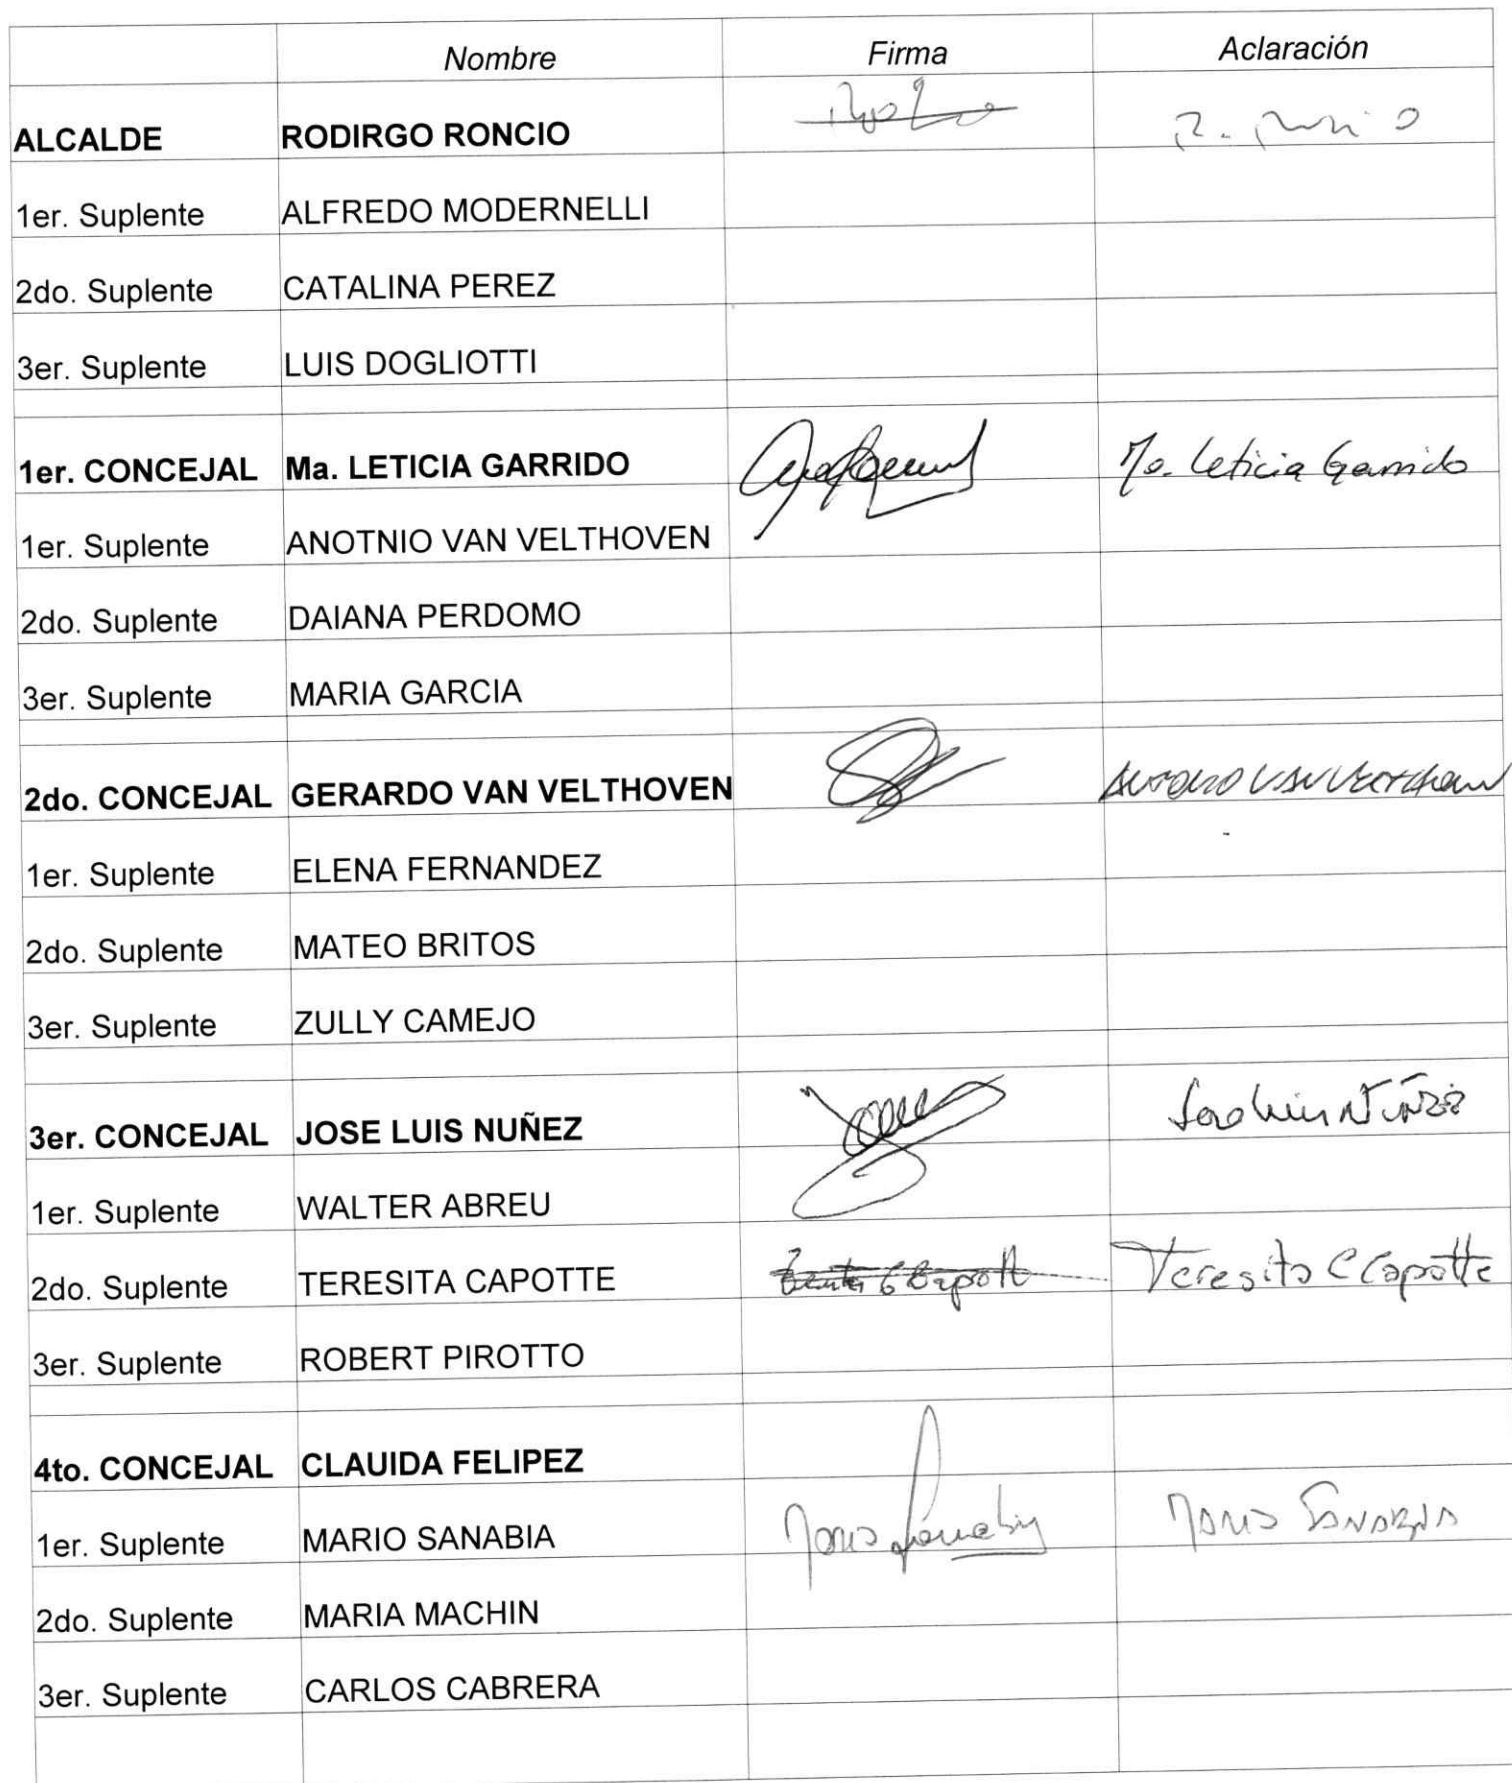 Nombre Firma Aclaración
ALCALDE RODIRGO RONCIO R.
1er. Suplente ALFREDO MODERNELLI
2do. Suplente CATALINA PEREZ
3er. Suplente LUIS DOGLIOTTI
1er. CONCEJAL Ma. LETICIA GARRIDO Ma. Leticia Garrido
1er. Suplente ANOTNIO VAN VELTHOVEN
2do. Suplente DAIANA PERDOMO
3er. Suplente MARIA GARCIA
2do. CONCEJAL GERARDO VAN VELTHOVEN VAN
1er. Suplente ELENA FERNANDEZ
2do. Suplente MATEO BRITOS
3er. Suplente ZULLY CAMEJO
3er. CONCEJAL JOSE LUIS NUÑEZ
1er. Suplente WALTER ABREU
2do. Suplente TERESITA CAPOTTE Teresita C Capotte
3er. Suplente ROBERT PIROTTO
4to. CONCEJAL CLAUIDA FELIPEZ
1er. Suplente MARIO SANABIA Mario Sanabia MARIO SANABIA
2do. Suplente MARIA MACHIN
3er. Suplente CARLOS CABRERA